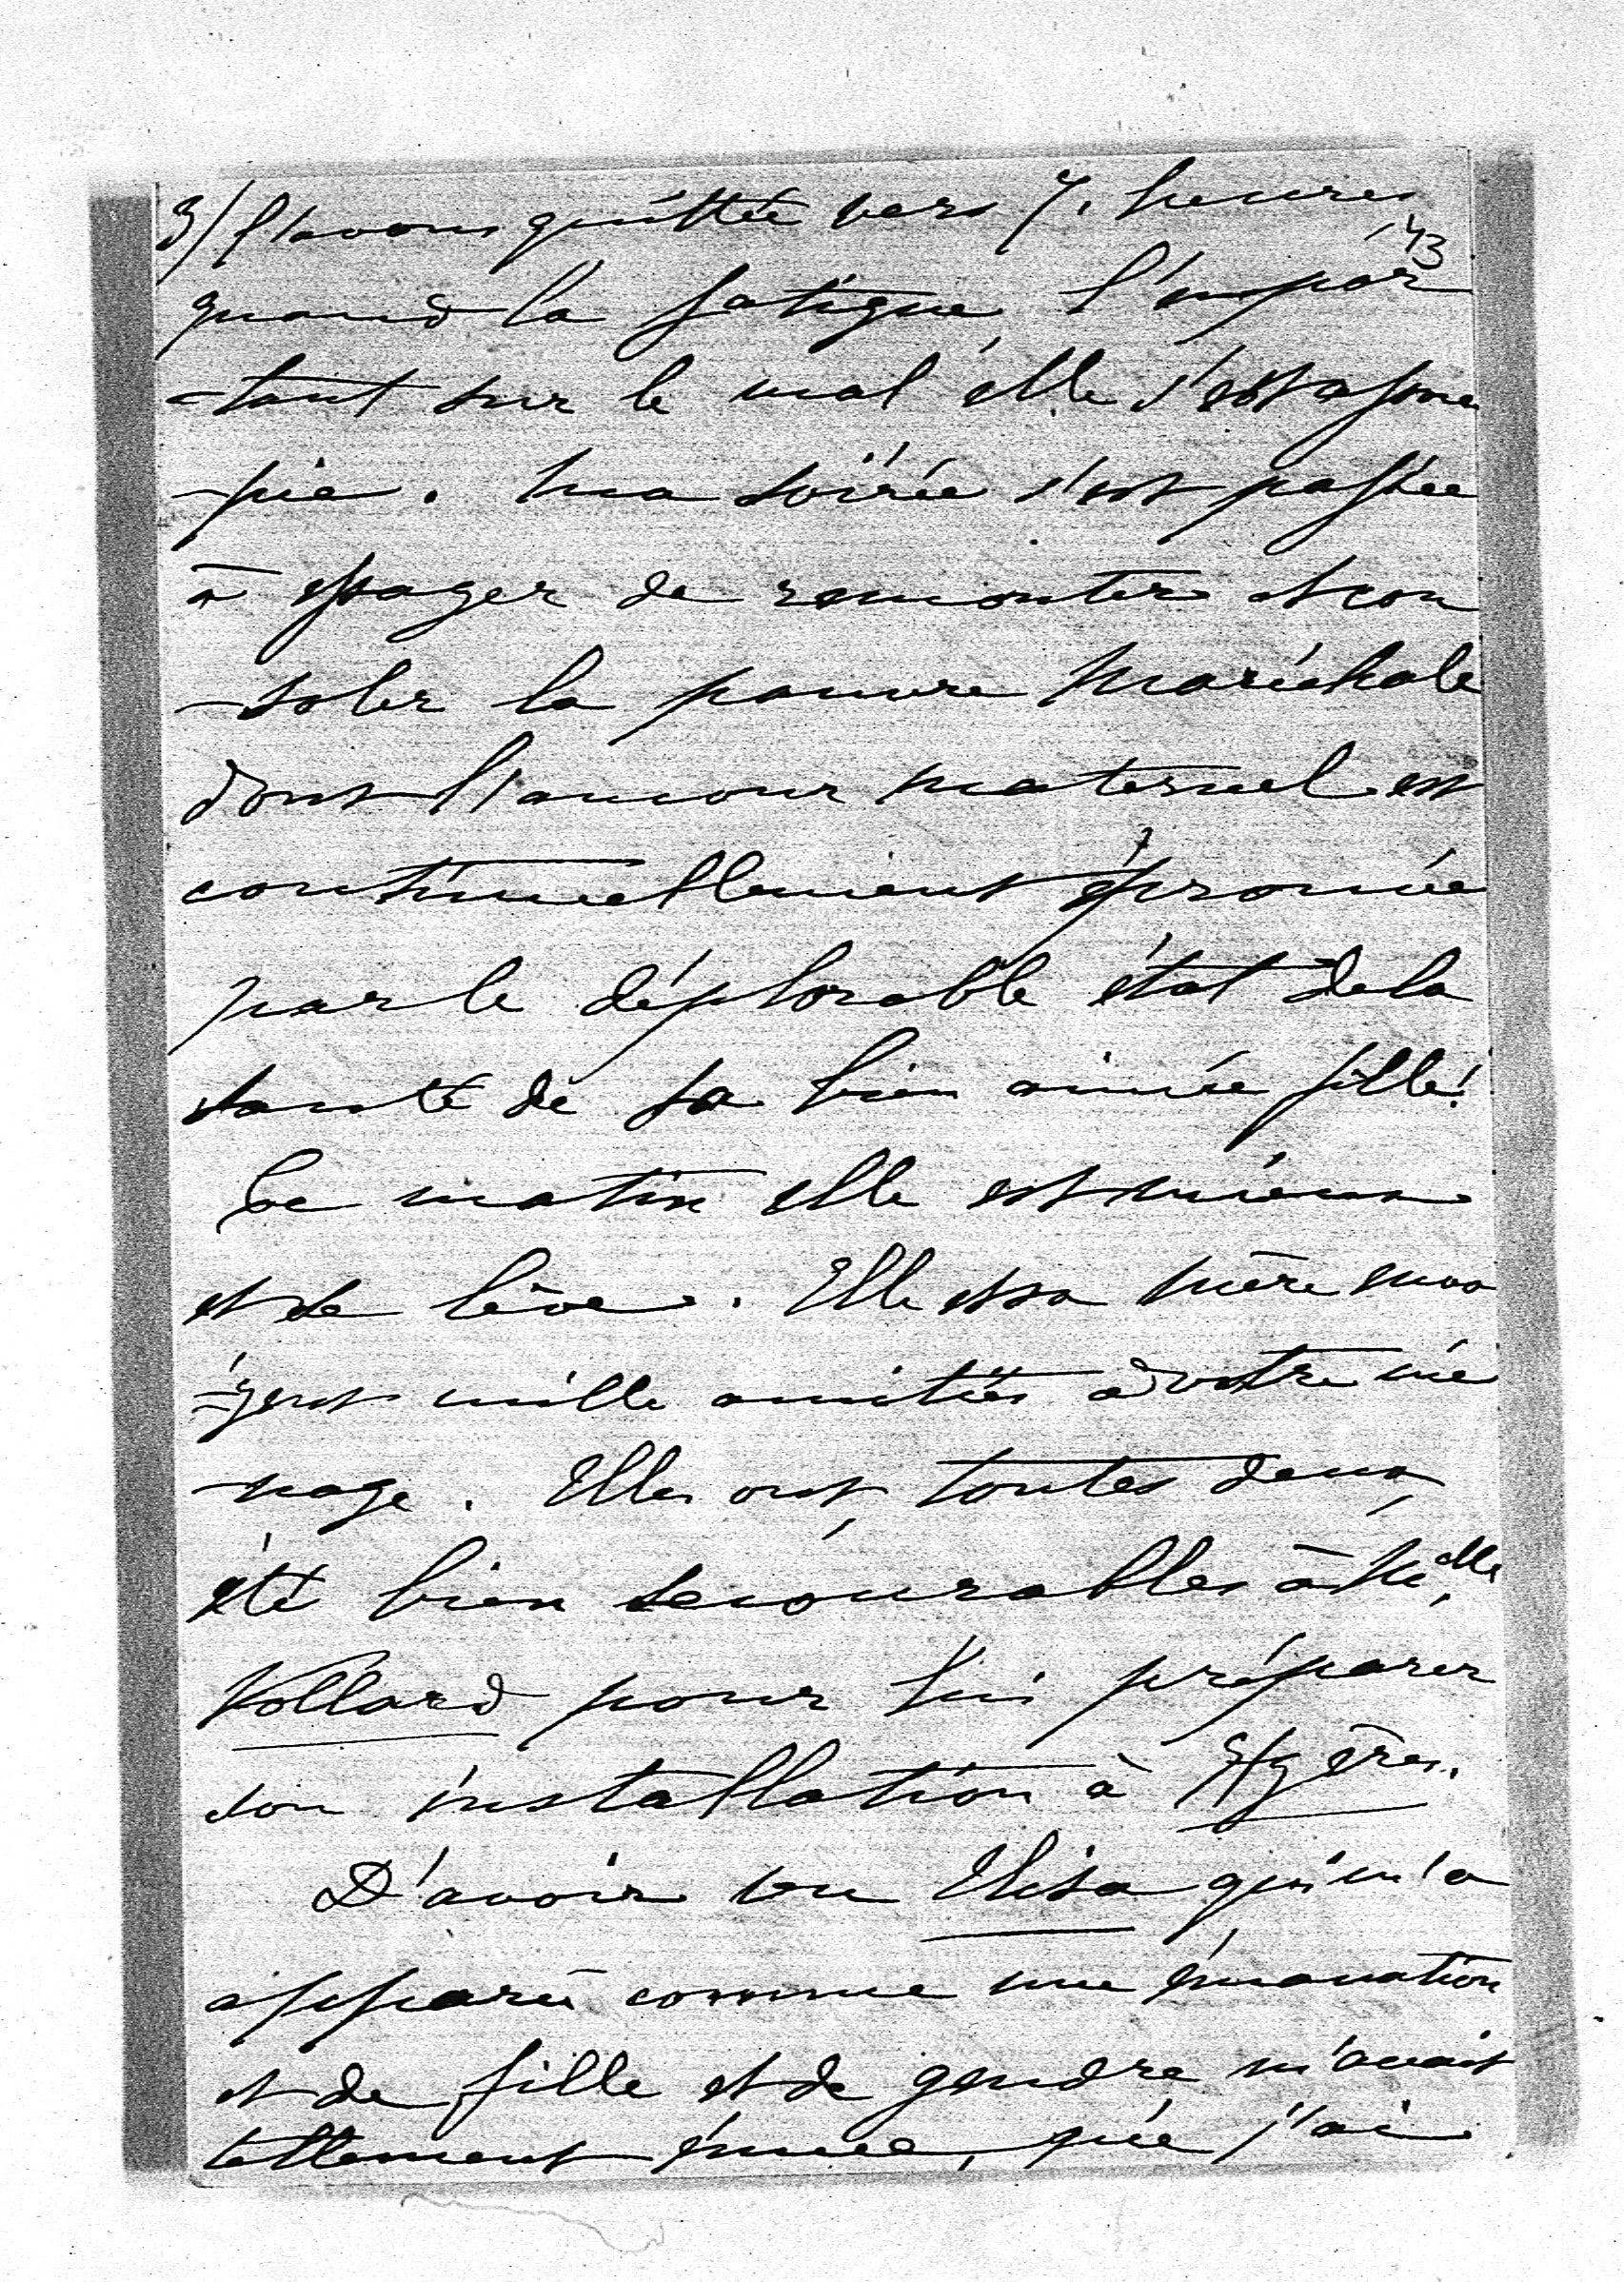 3/ l'avons quittée vers 7. heures
43
quand la fatigue l'empor
-tant sur le mal elle s'est assou
-pie. Ma soirée s'est passée
à essayer de remonter et con
-soler la pauvre Maréchale
dont l'amour maternel est
continuellement éprouvée
par le déplorable état de la
santé de sa bien aimée fille!
Ce matin elle est mieux
et se lève. Elle et sa mère
mille amitiés à votre mé
-nage. Elles ont toutes deux
été bien secourables à Melle
Vollard pour lui préparer
son installation à Hyères.
D'avoir vu Elisa qui m'a
apparu comme une émanation
et de fille et de gendre m'avait
tellement émue, que j'ai